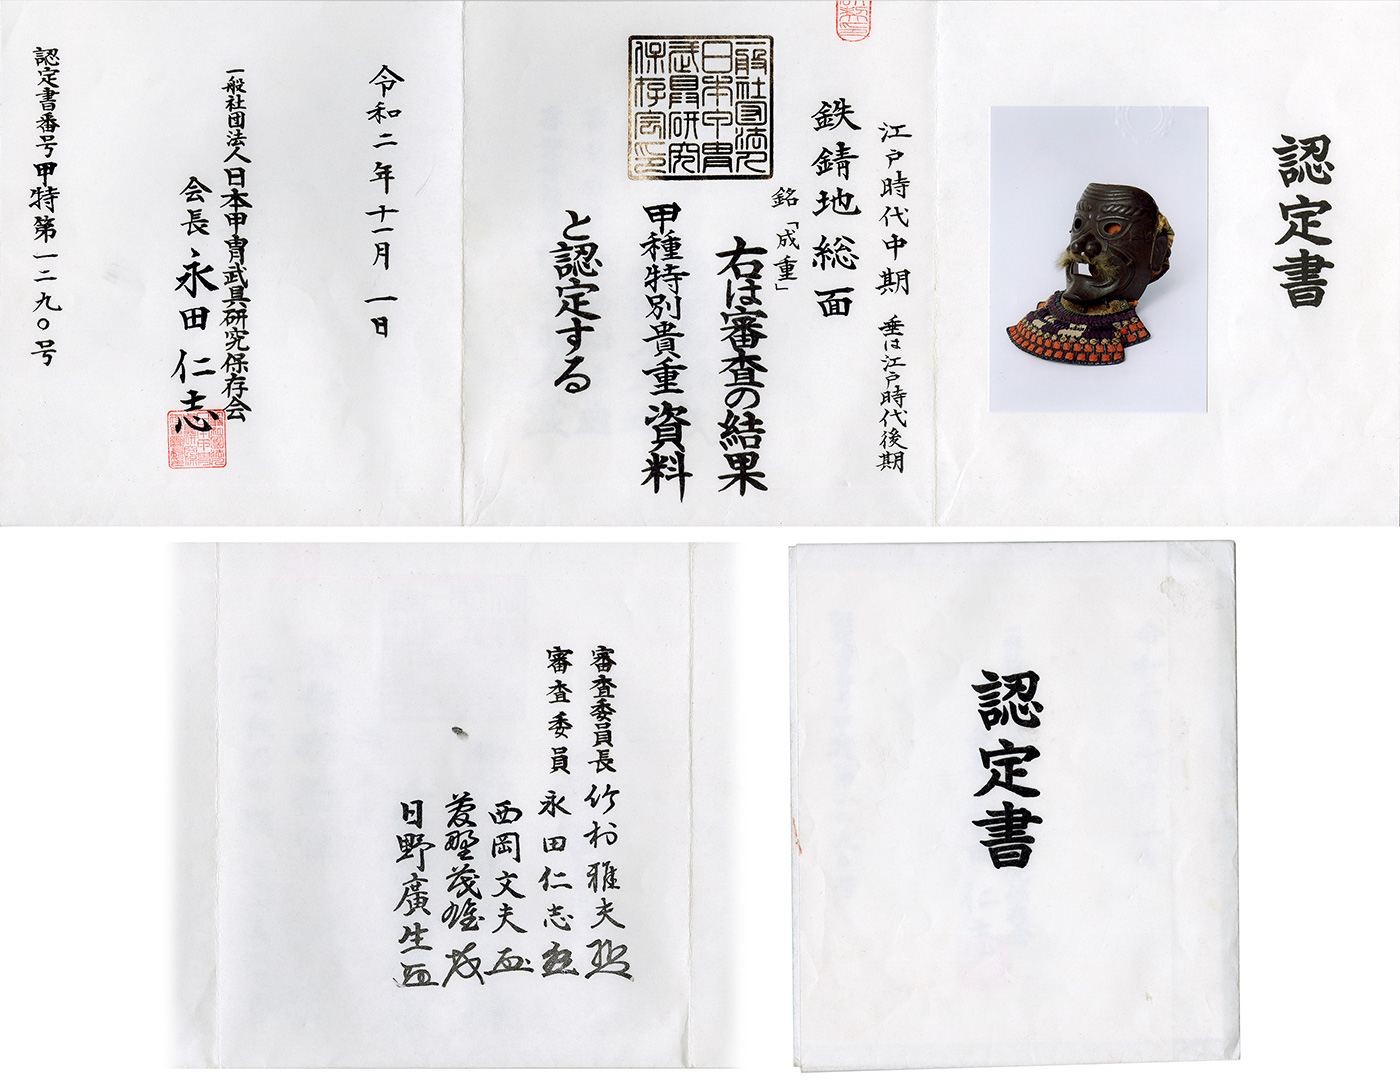 認定書
江戸時代中期 垂は江戸時代後期
鉄錆地総面
銘「成重」
右は審査の結果
甲種特別貴重資料
と認定する
一般社団法人
日本甲冑
武具研究
保存会印
令和二年十一月一日
一般社団法人日本甲冑武具研究保存会
会長 永田仁志
認定書番号甲特第一二九〇号
審査委員長 竹村雅夫
審査委員 永田仁志
西岡文夫
菱野茂雄
日野廣生
認定書